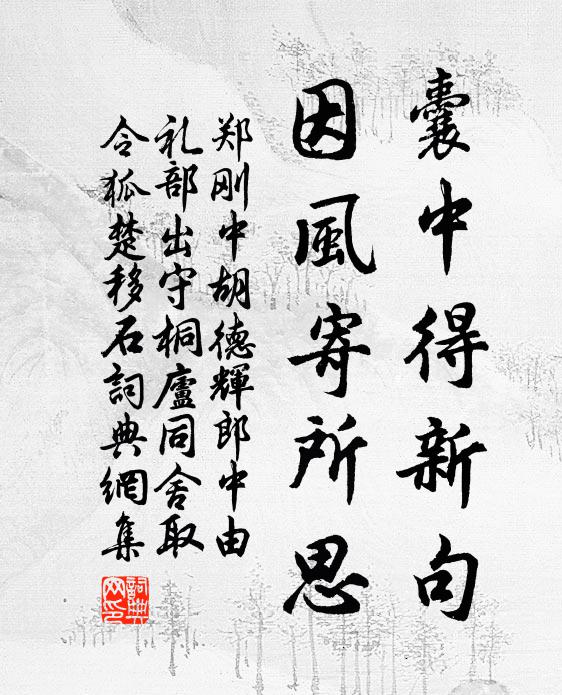 囊中得新句
因風寄所思
郑刚中胡德輝郎中由
礼部出守桐廬同舍取
令狐楚移石詞典網集
詞典網印